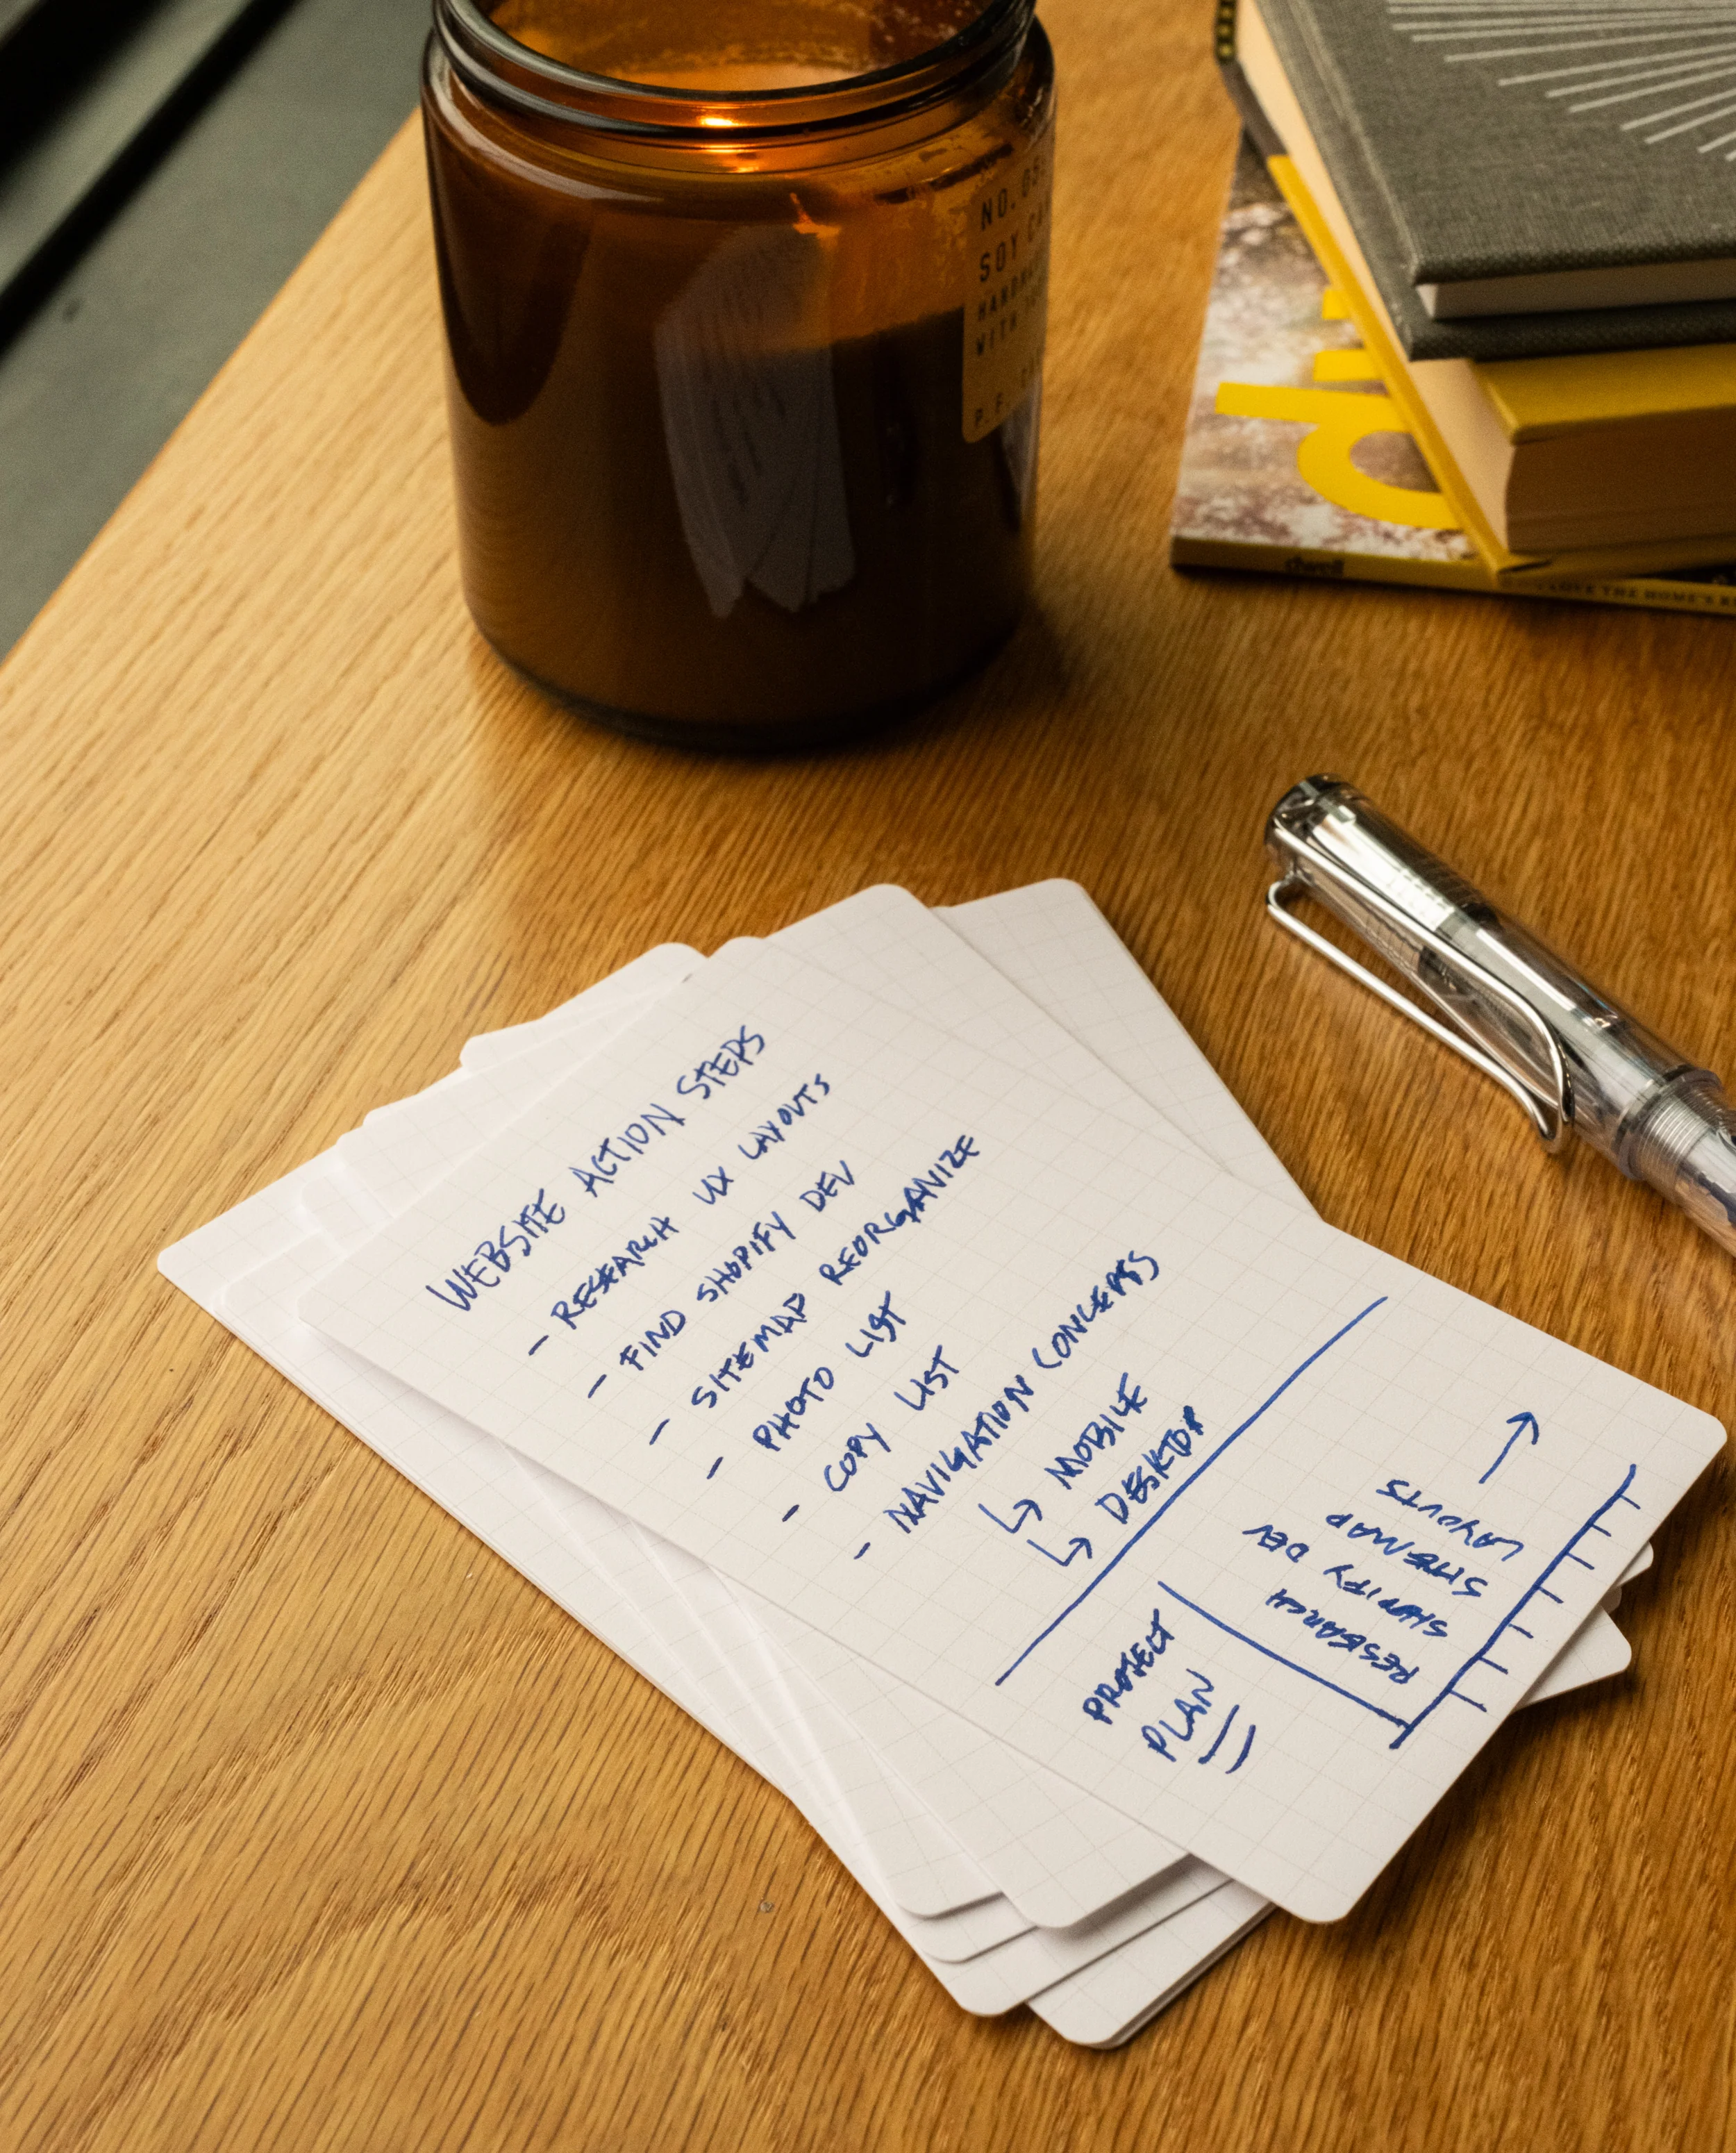 NO. 05
SOY CA
HANDMA
WITH
P. F.
dwell
THE HOME'S
WEBSITE ACTION STEPS
- RESEARCH UX LAYOUTS
- FIND SHOPIFY DEV
- SITEMAP REORGANIZE
- PHOTO LIST
- COPY LIST
- NAVIGATION CONCEPTS
↳ MOBILE
↳ DESKTOP
PROJECT
PLAN
RESEARCH
SHOPIFY DEV
SITEMAP
LAYOUTS